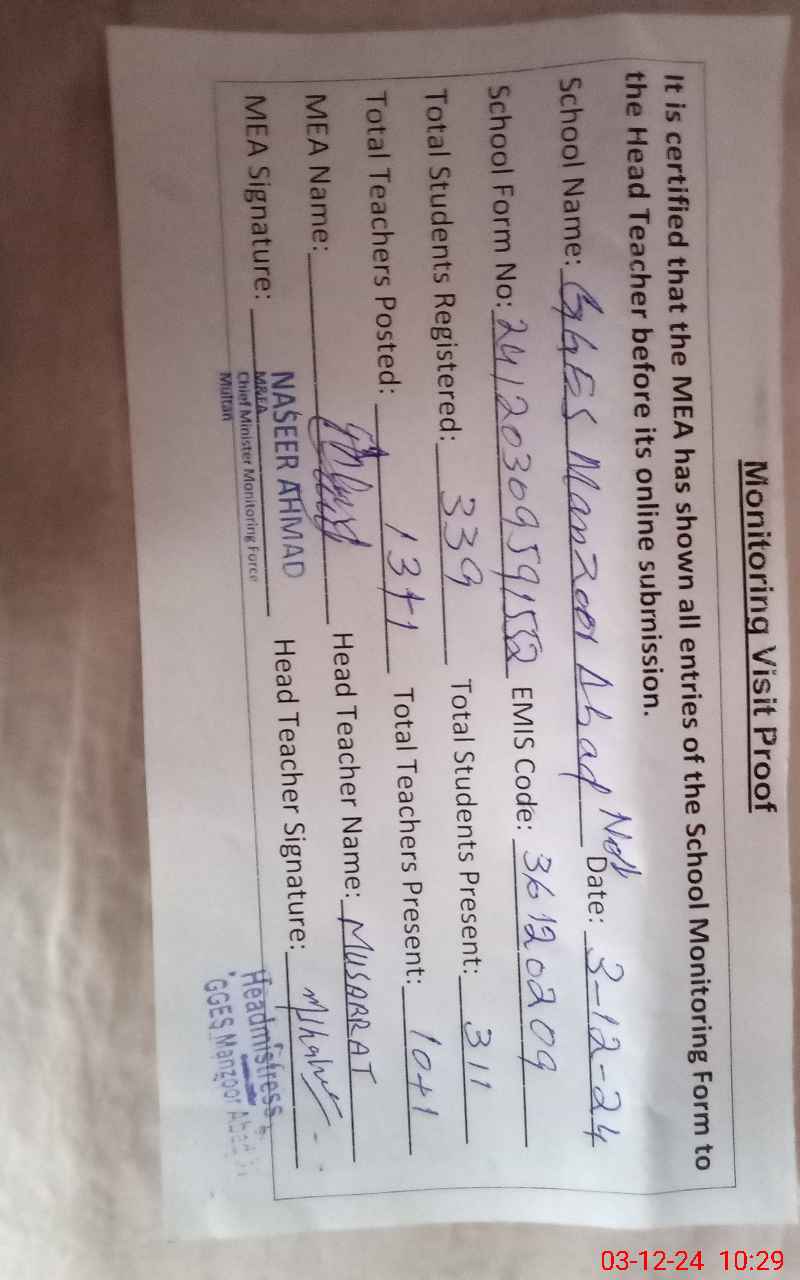 Monitoring Visit Proof
It is certified that the MEA has shown all entries of the School Monitoring Form to
the Head Teacher before its online submission.
School Name: GGES Manzoor Abad No1 Date: 3-12-24
School Form No: EMIS Code: 36120209
Total Students Registered: 339 Total Students Present: 311
Total Teachers Posted: 13+1 Total Teachers Present: 10+1
MEA Name: Head Teacher Name: MUSARRAT
MEA Signature: Head Teacher Signature:
NASEER AHMAD
M&EA
Chief Minister Monitoring Force
Multan
Headmistress
GGES Manzoor Abad
03-12-24 10:29